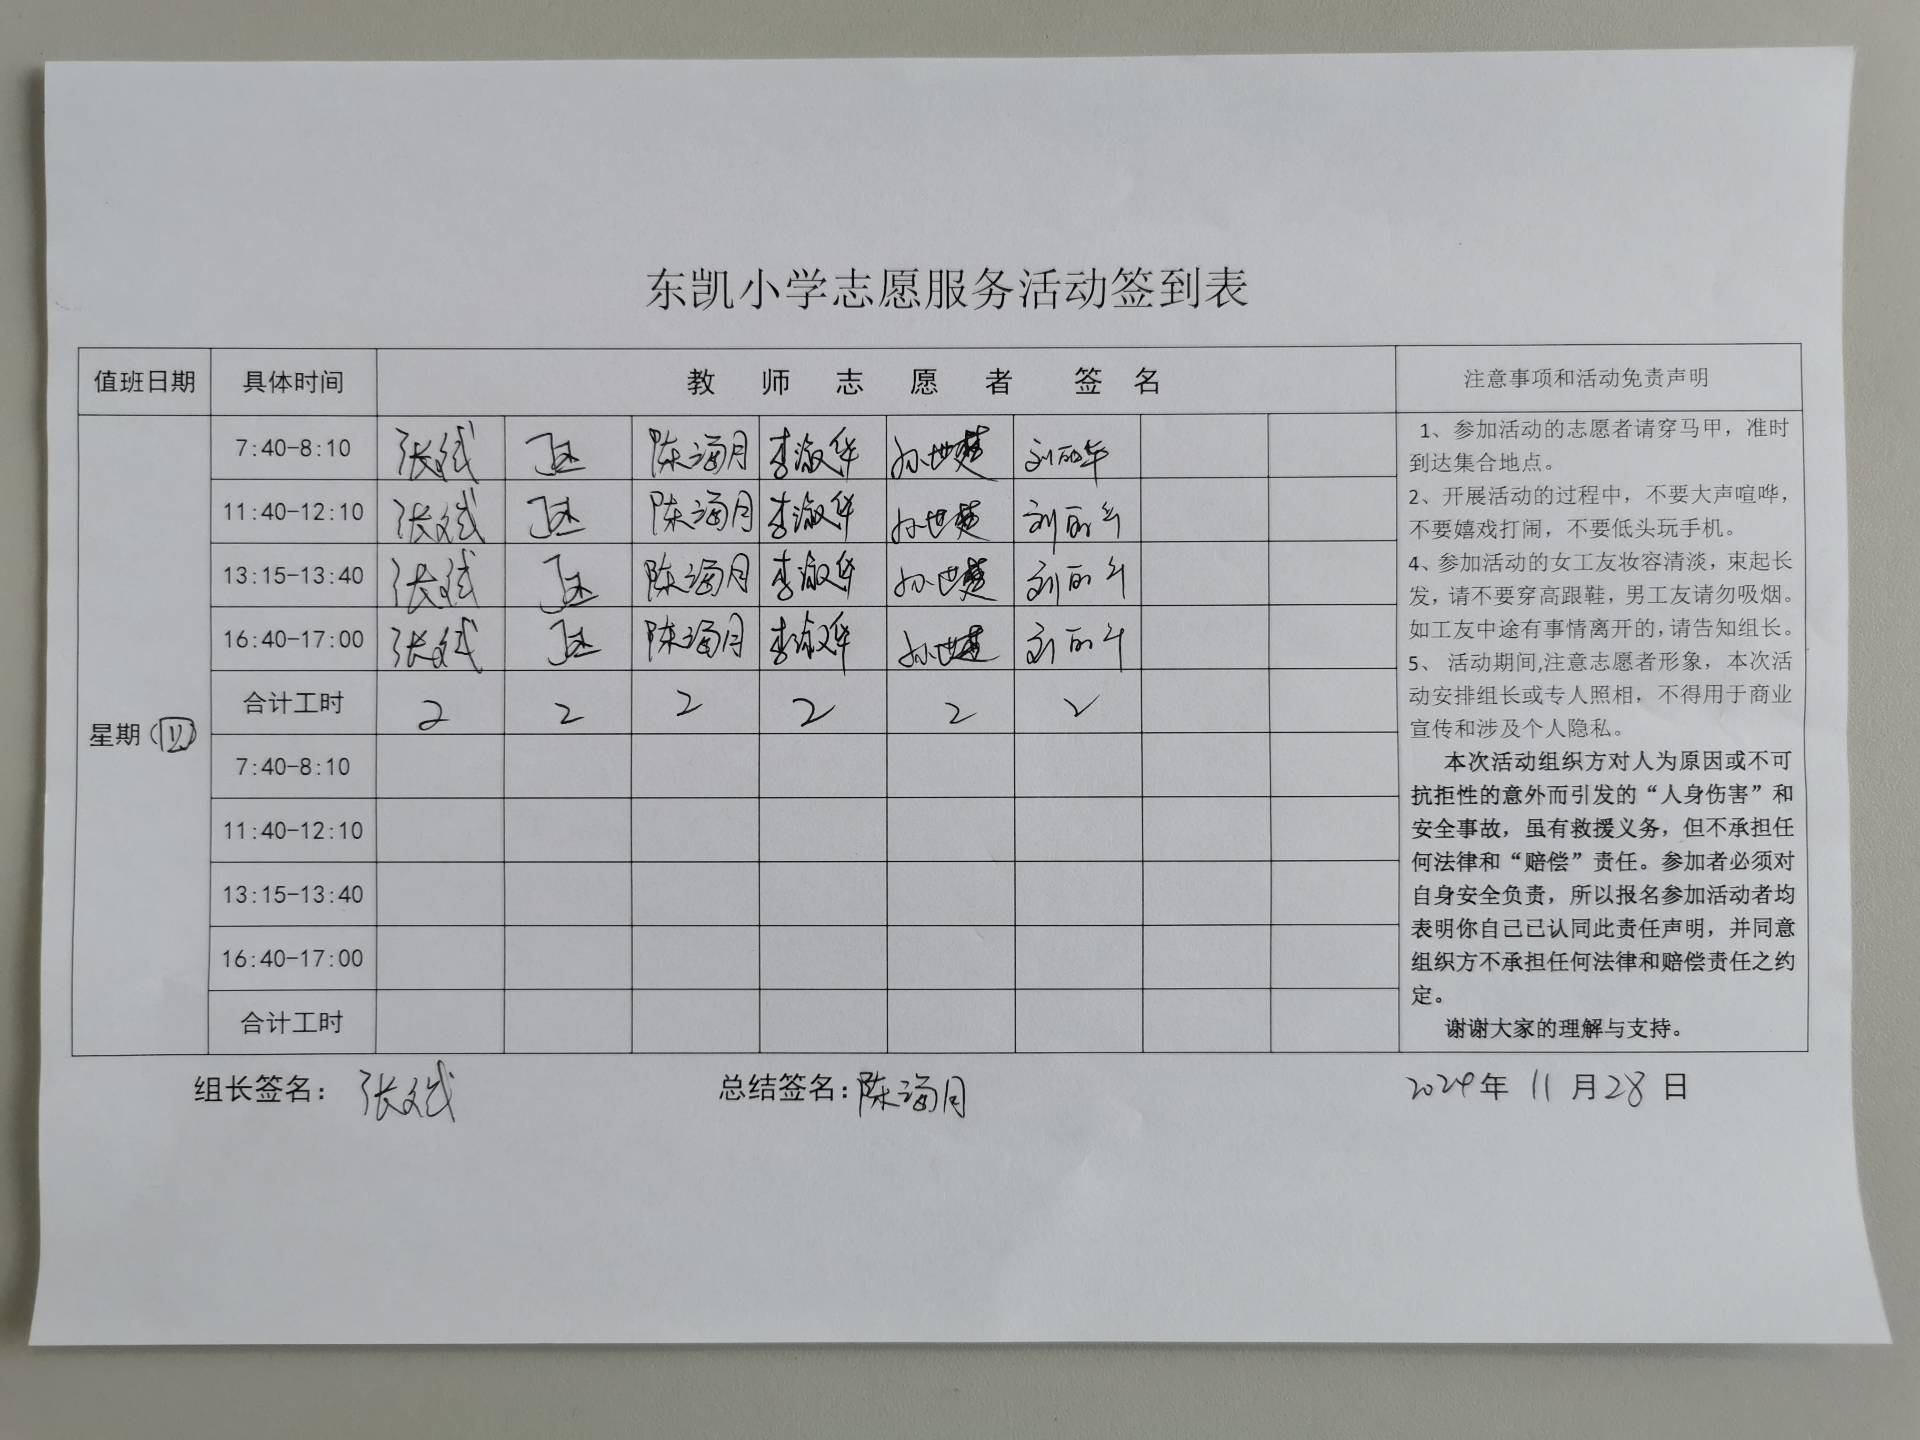 东凯小学志愿服务活动签到表
值班日期 具体时间 教师志愿者签名 注意事项和活动免责声明
星期（四）
7:40-8:10 张斌 陈海月 李淑华 孙世楚 刘丽华
11:40-12:10 张斌 陈海月 李淑华 孙世楚 刘丽华
13:15-13:40 张斌 陈海月 李淑华 孙世楚 刘丽华
16:40-17:00 张斌 陈海月 李淑华 孙世楚 刘丽华
合计工时 2 2 2 2 2 2
7:40-8:10
11:40-12:10
13:15-13:40
16:40-17:00
合计工时
1、参加活动的志愿者请穿马甲，准时
到达集合地点。
2、开展活动的过程中，不要大声喧哗，
不要嬉戏打闹，不要低头玩手机。
4、参加活动的女工友妆容清淡，束起长
发，请不要穿高跟鞋，男工友请勿吸烟。
如工友中途有事情离开的，请告知组长。
5、 活动期间,注意志愿者形象，本次活
动安排组长或专人照相，不得用于商业
宣传和涉及个人隐私。
本次活动组织方对人为原因或不可
抗拒性的意外而引发的“人身伤害”和
安全事故，虽有救援义务，但不承担任
何法律和“赔偿”责任。参加者必须对
自身安全负责，所以报名参加活动者均
表明你自己已认同此责任声明，并同意
组织方不承担任何法律和赔偿责任之约
定。
谢谢大家的理解与支持。
组长签名： 张斌 总结签名：陈海月 2024年 11 月 28 日